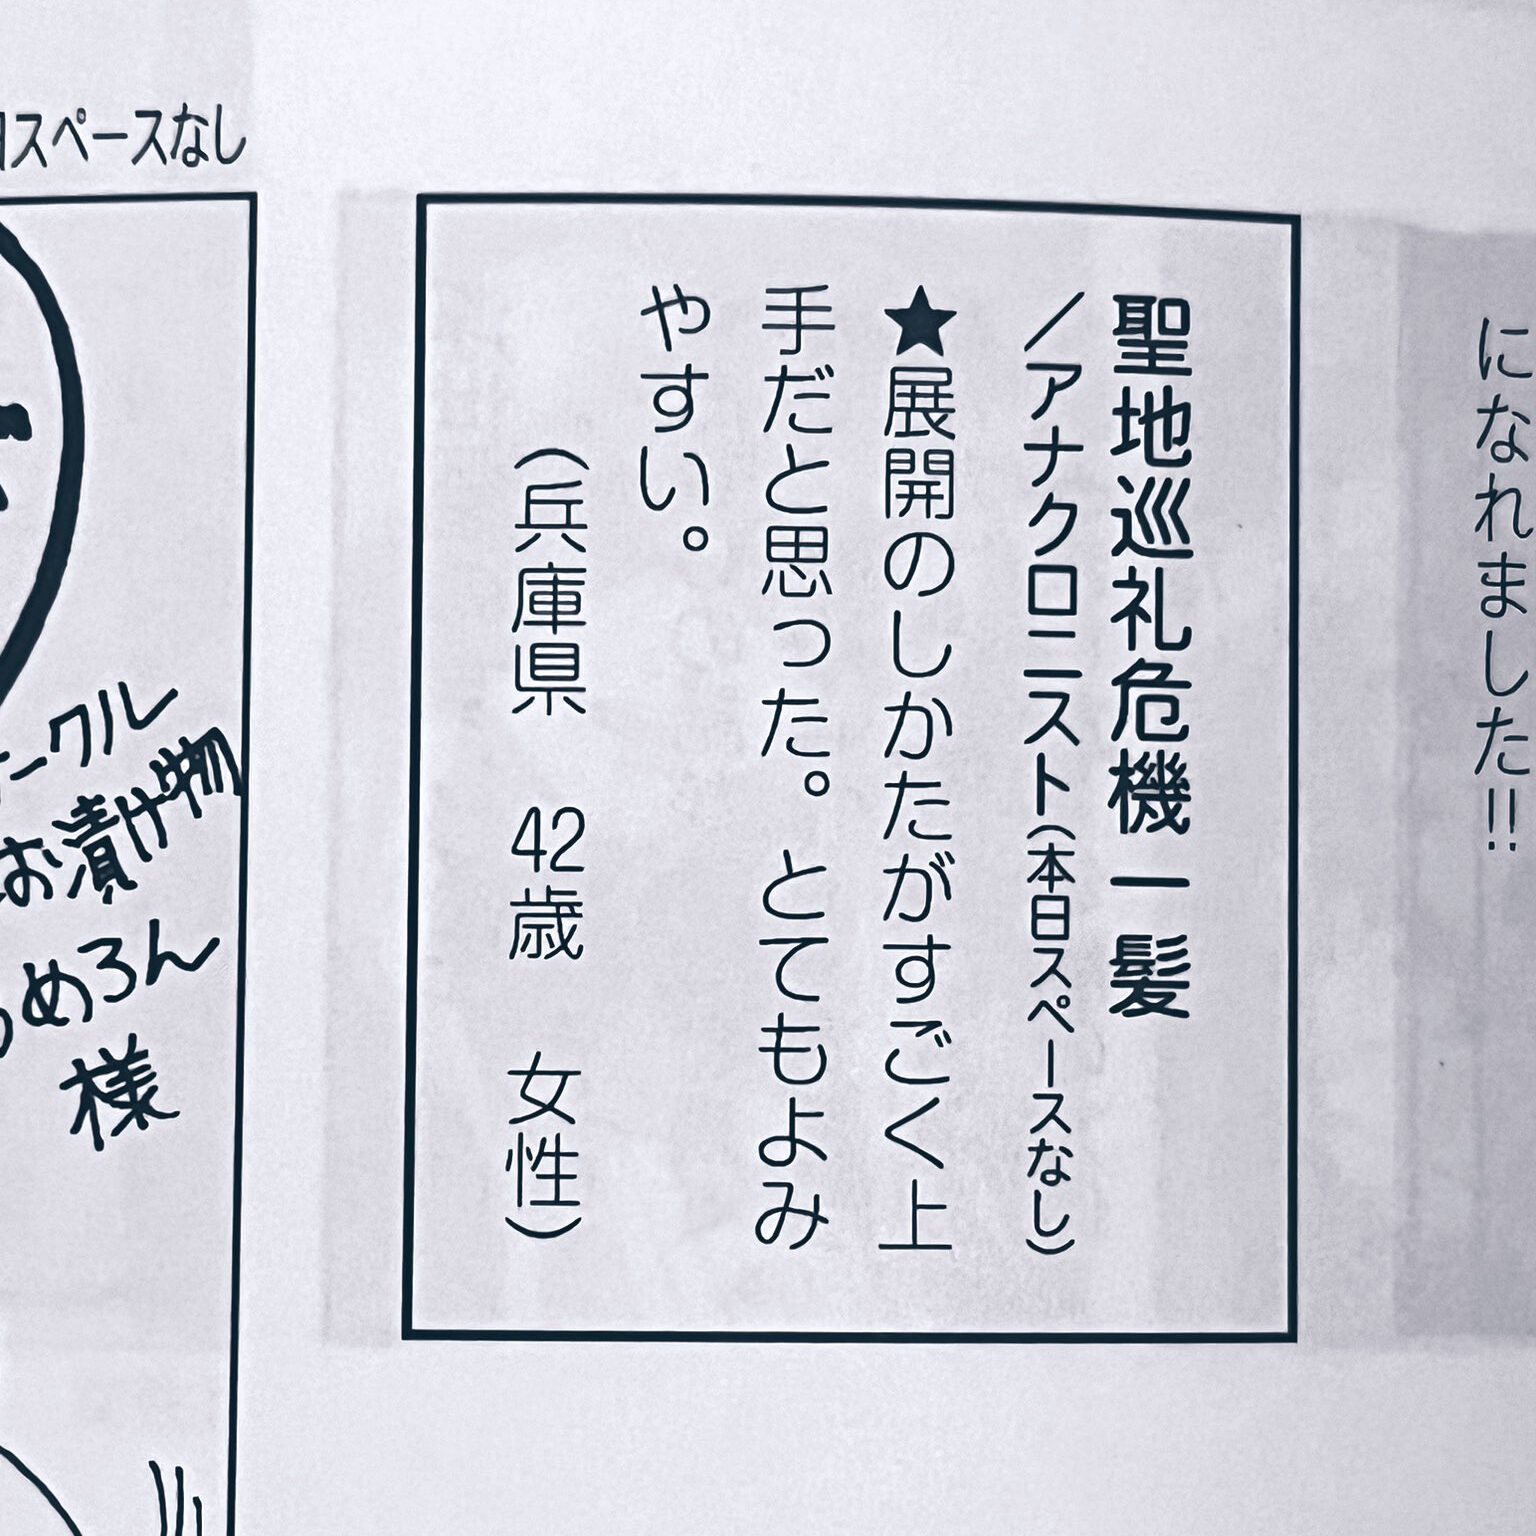 になれました!!
聖地巡礼危機一髪
／アナクロニスト(本日スペースなし)
★展開のしかたがすごく上
手だと思った。とてもよみ
やすい。
(兵庫県　42歳　女性)
スペースなし
ークル
お漬け物
めろん
様